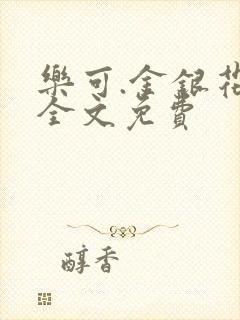 樂可.金銀花
全文免費
醇香